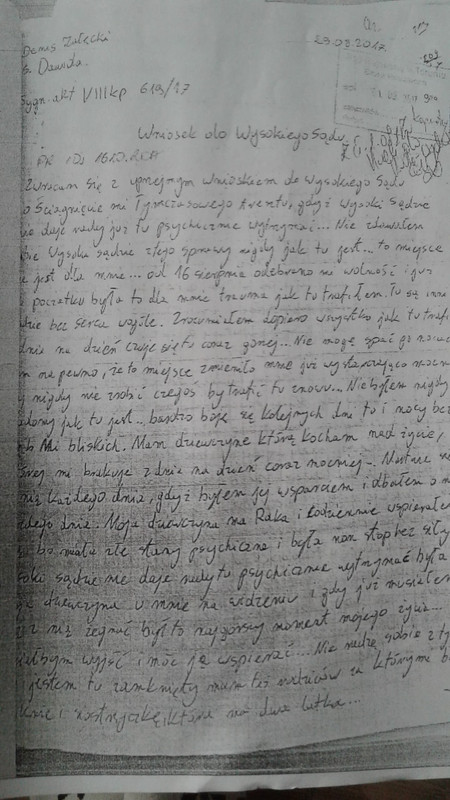 Denis Załęcki
s. Dawida
29.08.2017
Sygn. akt VIII kp 619/17
Wniosek do Wysokiego Sądu
Zwracam się z uprzejmym wnioskiem do Wysokiego Sądu
o ściągnięcie mi Tymczasowego Aresztu, gdyż wysoki sądzie
nie daje rady już tu psychicznie wytrzymać... Nie zdawałem
Wysoki sądzie złego sprawy nigdy jak tu jest... to miejsce
jest dla mnie... od 16 sierpnia odebrano mi wolność i już
początku była to dla mnie trauma jak tu trafiłem. Tu są inni
bez serca wogóle. Zrozumiałem dopiero wszystko, jak tu trafi
dnia na dzień czuje się tu coraz gorzej... Nie mogę spać po nocach
na pewno, że to miejsce zmieniło mnie już wystarczająco mocno
nigdy nie zrobić czegoś by trafić tu znowu... Nie byłem nigdy
jak tu jest... bardzo boje się kolejnych dni tu i nocy bez
Mi bliskich. Mam dziewczynę którą kocham nad życie,
mi brakuje z dnia na dzień coraz mocniej...
każdego dnia, gdyż byłem jej wsparciem i dbałem o
dnia. Moja dziewczyna ma Raka i codziennie wspierałem
bo miała złe stany psychiczne i była non stop bez siły
sądzie nie daje rady tu psychicznie wytrzymać była
dziewczyna u mnie na widzeniu i gdy już musiałem
z nią żegnać był to najgorszy moment mojego życia...
wyjść i móc ją wspierać... Nie radzę sobie z ty
jestem tu zamknięty mam też rodziców za którymi
i siostrzyczkę, która ma dwa latka...